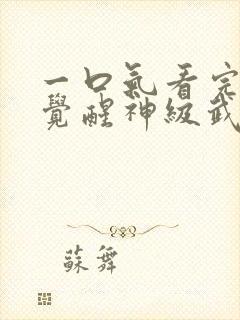 一口氣看完
覺醒神級武
蘇舞